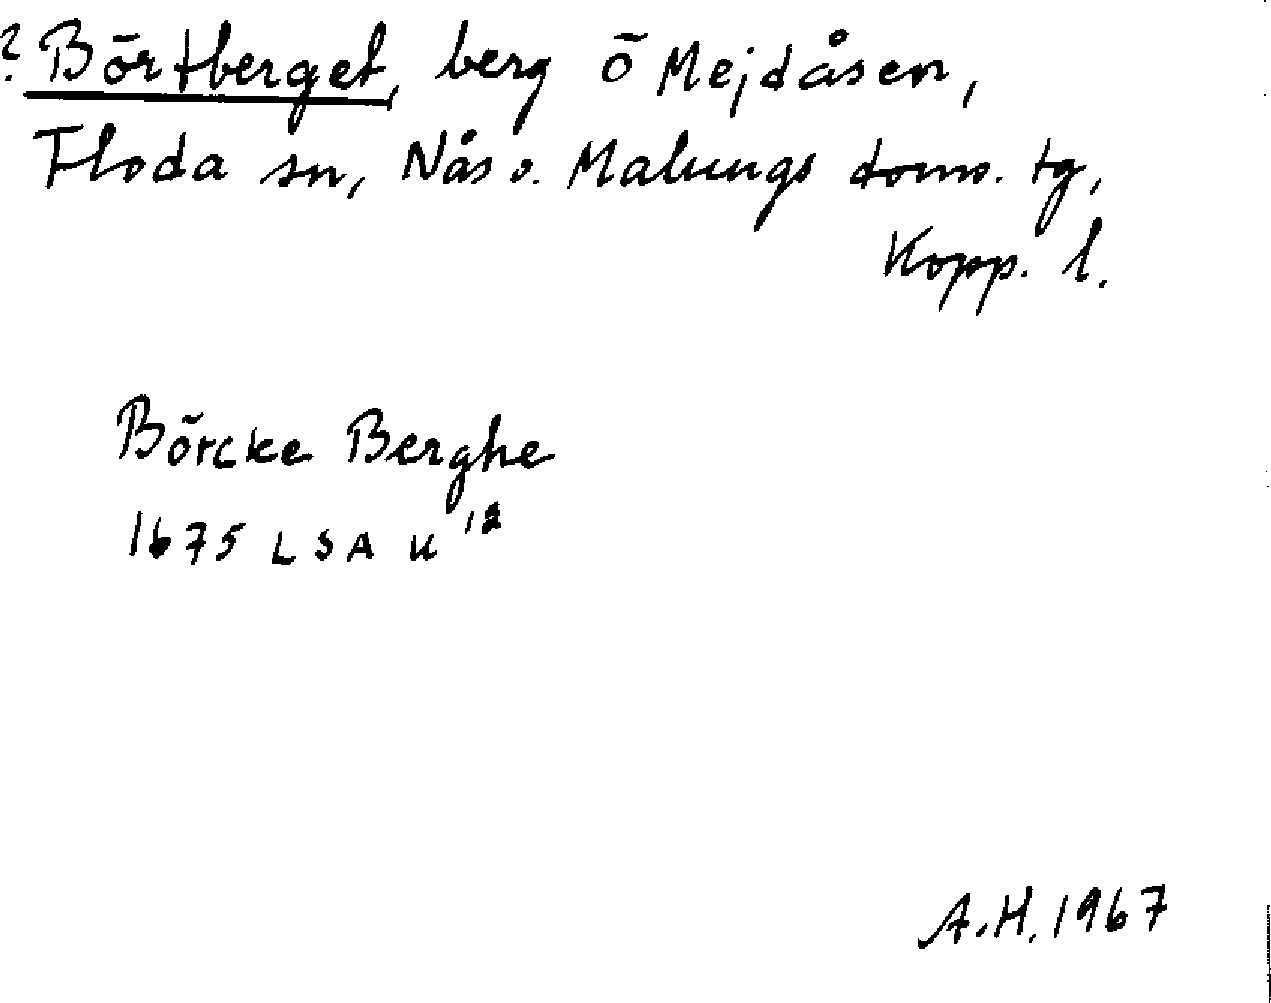 ? Börtberget, berg ö Mejdåsen,
Floda sn, Nås o. Malungs doms. tg,
Kopp. l.
Börcke Berghe
1675 LSA K 12
A.H. 1967